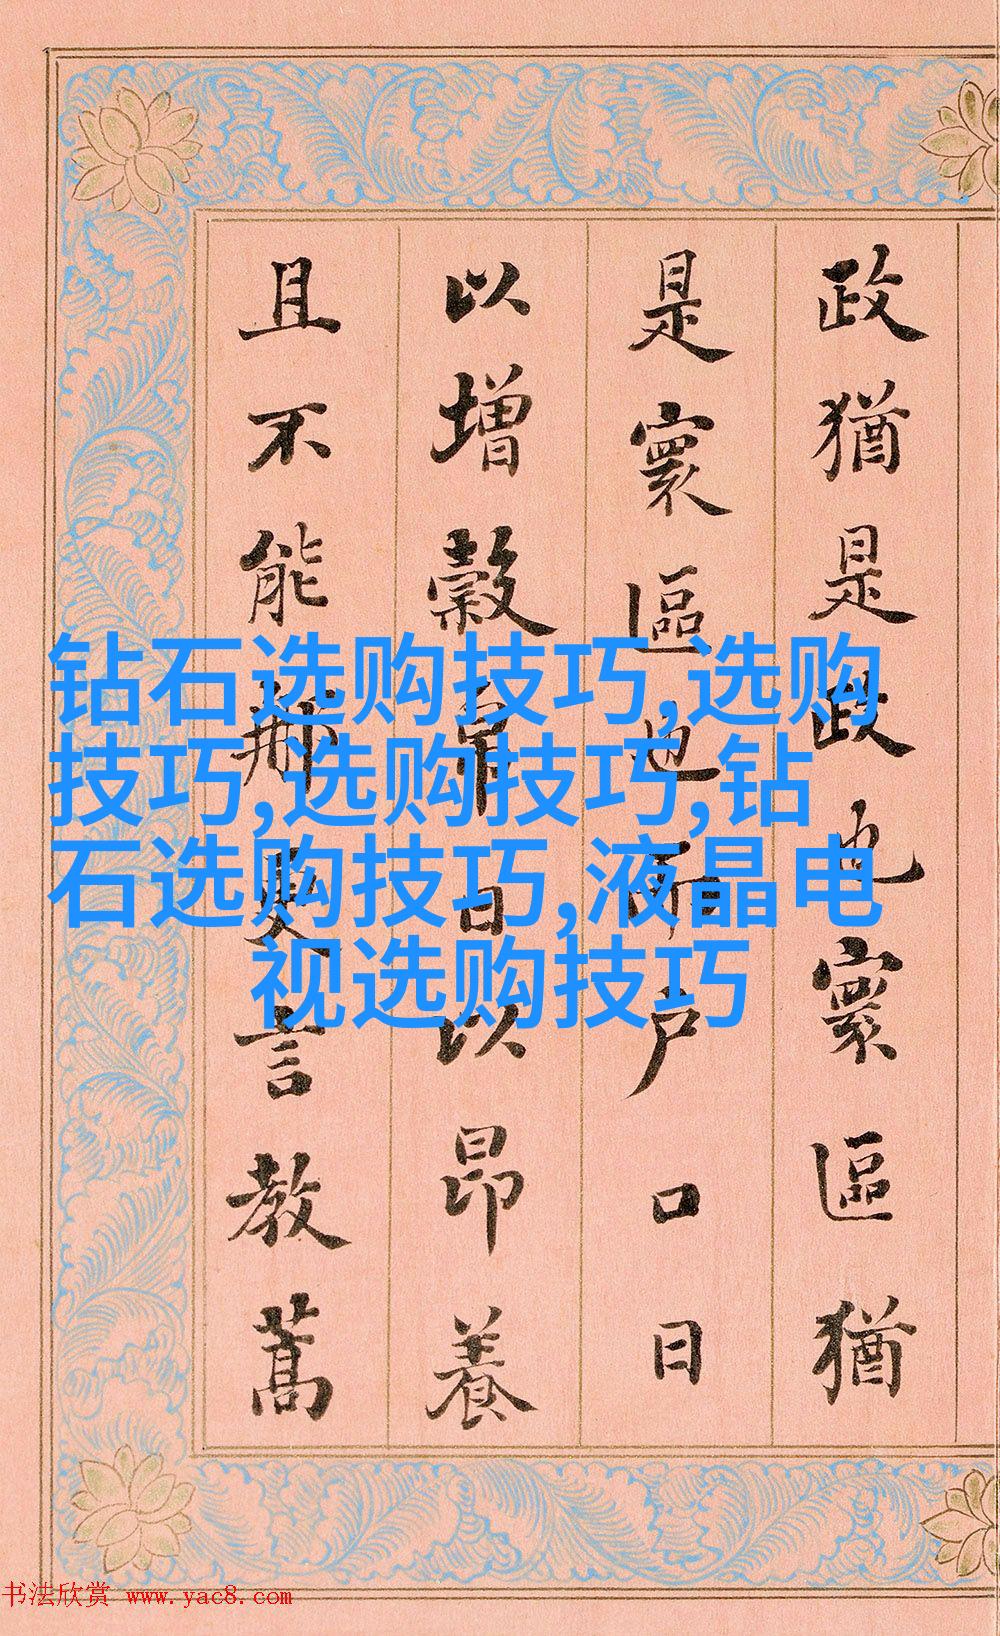 政猶是政也寰區猶
是寰區也而戶口日
以增穀帛日以昂養
且不能那更言教蒿
钻石选购技巧,选购
技巧,选购技巧,钻
石选购技巧,液晶电
视选购技巧
书法欣赏 www.yac8.com